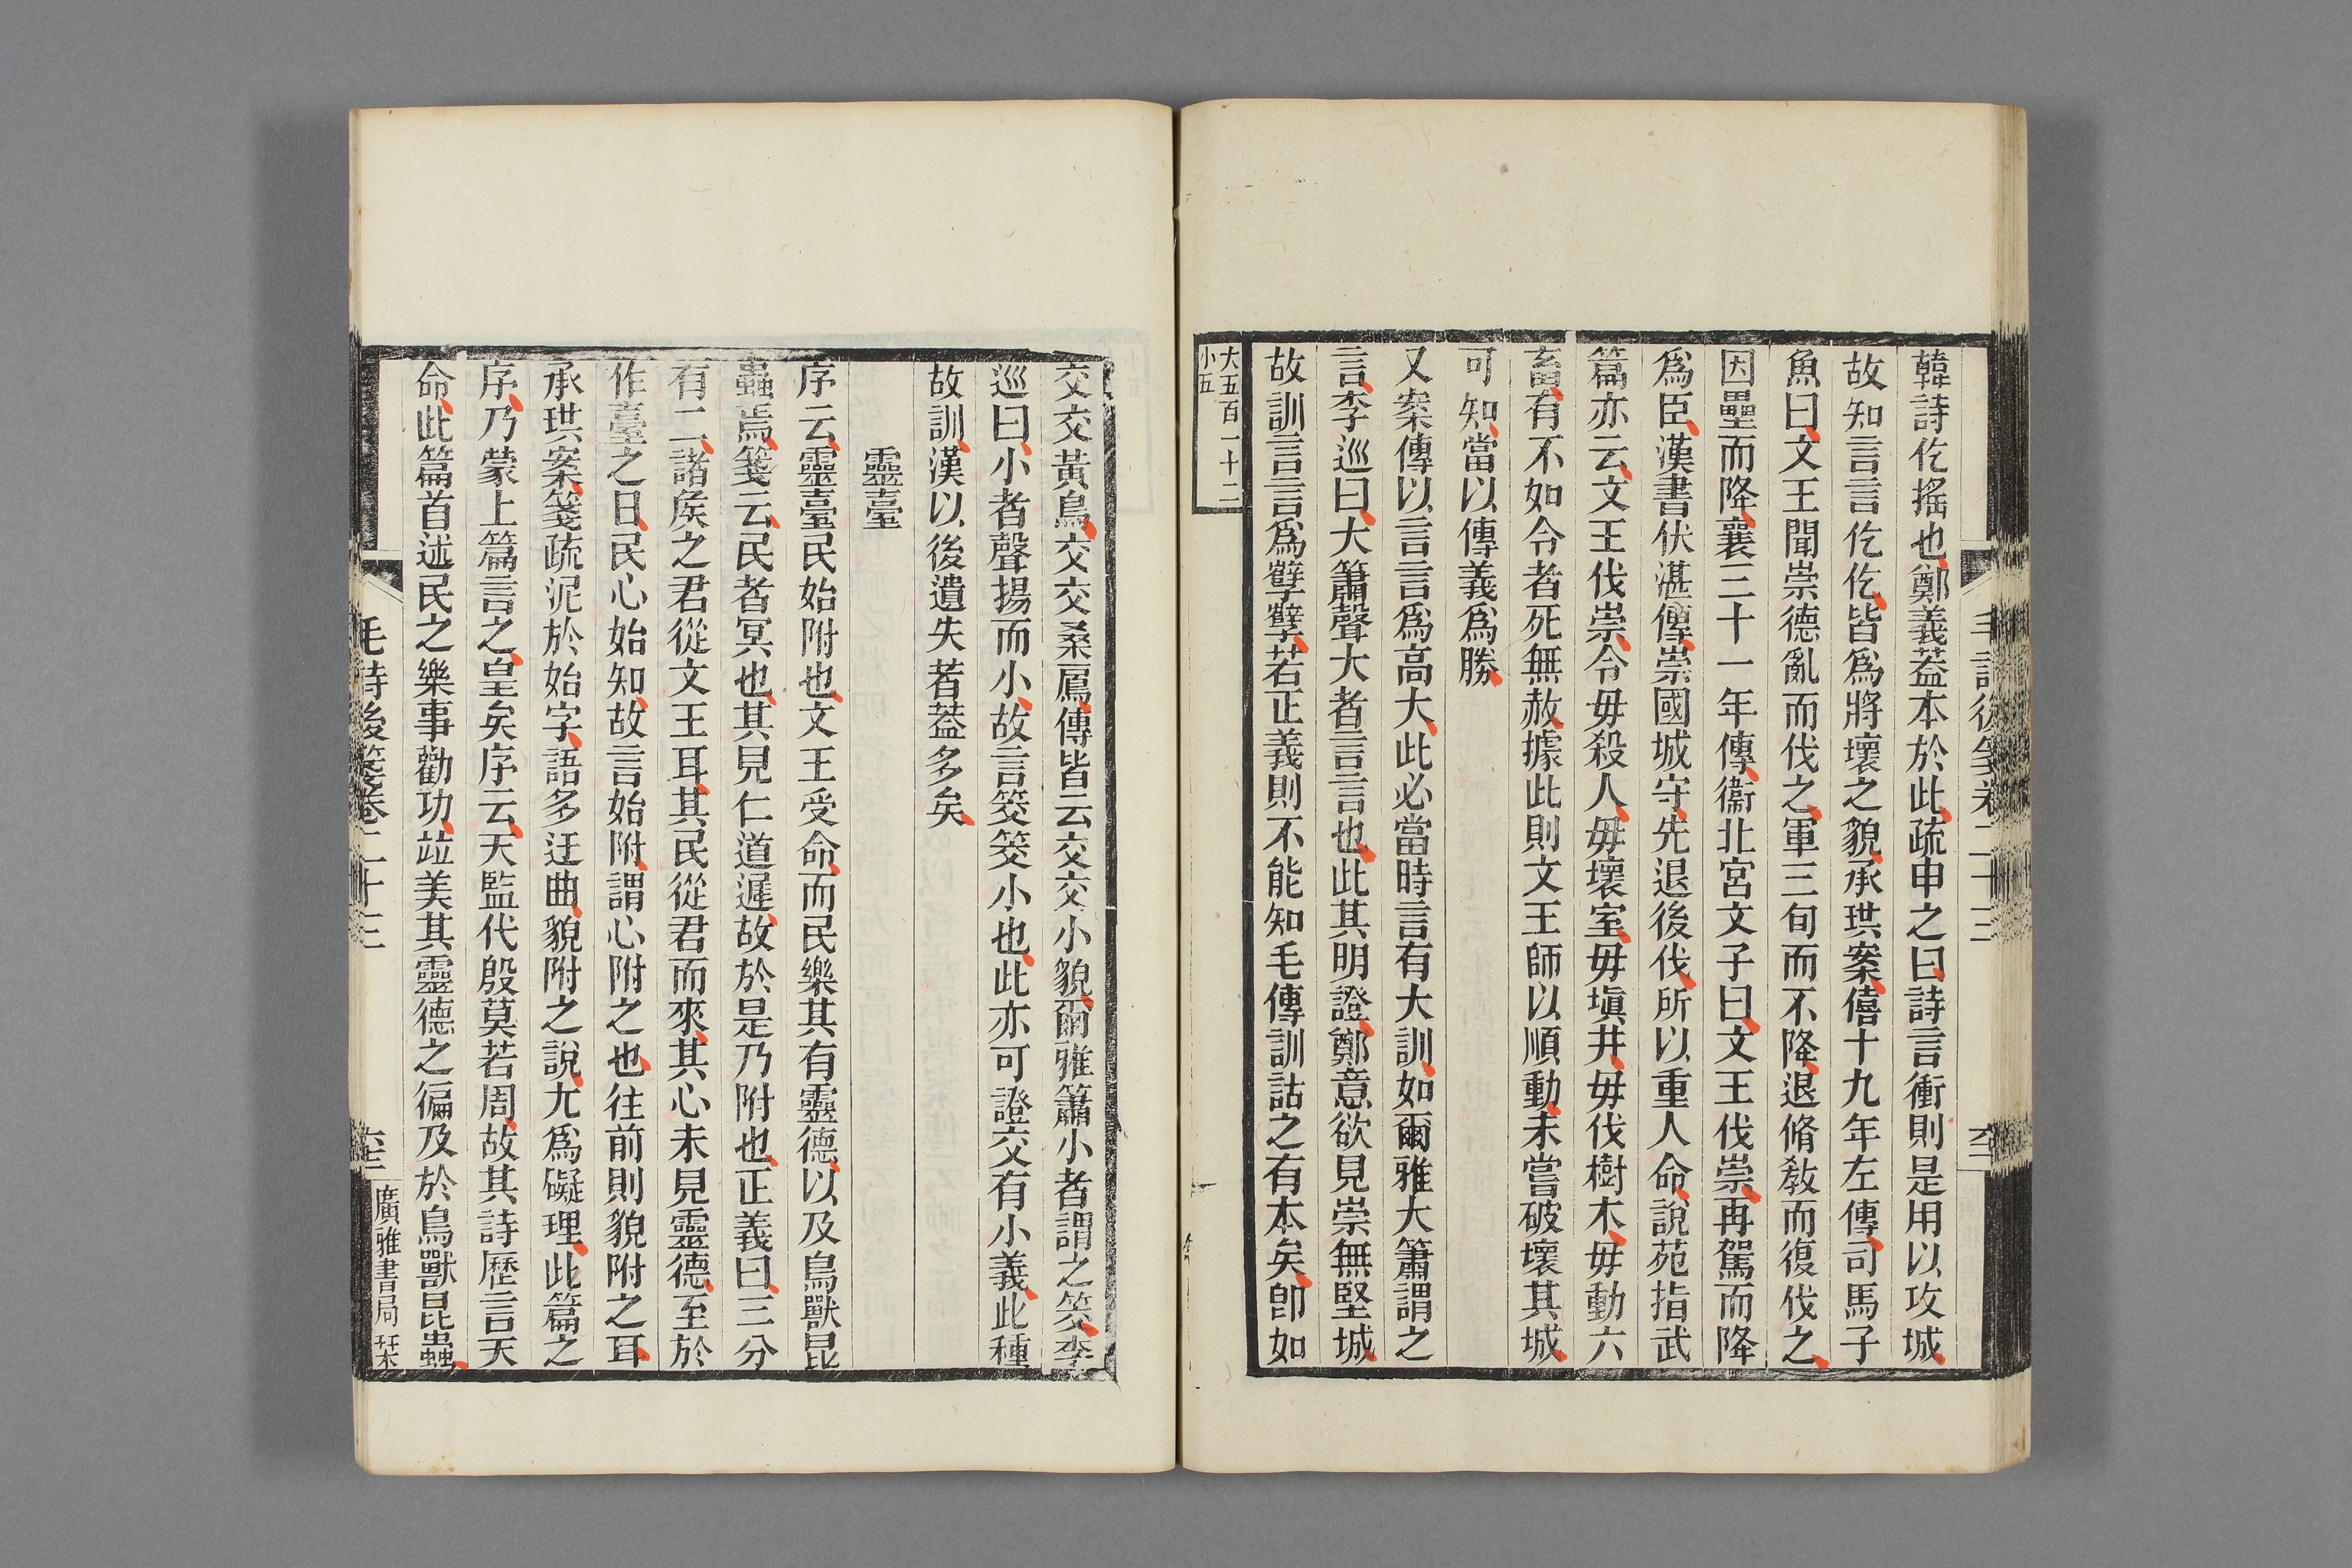 韓詩仡搖也鄭義葢本於此疏申之曰詩言衝則是用以攻城
故知言言仡仡皆爲將壞之貌承珙案僖十九年左傳司馬子
魚曰文王聞崇德亂而伐之軍三旬而不降退脩敎而復伐之
因壘而降襄三十一年傳衞北宮文子曰文王伐崇再駕而降
爲臣漢書伏湛傳崇國城守先退後伐所以重人命說苑指武
篇亦云文王伐崇令毋殺人毋壞室毋塡井毋伐樹木毋動六
畜有不如令者死無赦據此則文王師以順動未嘗破壞其城
可知當以傳義爲勝
又案傳以言言爲高大此必當時言有大訓如爾雅大簫謂之
言李巡曰大簫聲大者言言也此其明證鄭意欲見崇無堅城
故訓言言爲孼孼若正義則不能知毛傳訓詁之有本矣卽如
大五百一十二
小五
交交黃鳥交交桑扈傳皆云交交小貌爾雅簫小者謂之筊李
巡曰小者聲揚而小故言筊筊小也此亦可證交有小義此種
故訓漢以後遺失者葢多矣
靈臺
序云靈臺民始附也文王受命而民樂其有靈德以及鳥獸昆
蟲焉箋云民者冥也其見仁道遲故於是乃附也正義曰三分
有二諸矦之君從文王耳其民從君而來其心未見靈德至於
作臺之日民心始知故言始附謂心附之也往前則貌附之耳
承珙案箋疏泥於始字語多迂曲貌附之說尤爲礙理此篇之
序乃蒙上篇言之皇矣序云天監代殷莫若周故其詩歷言天
命此篇首述民之樂事勸功竝美其靈德之徧及於鳥獸昆蟲
毛詩後箋卷二十三
廣雅書局栞